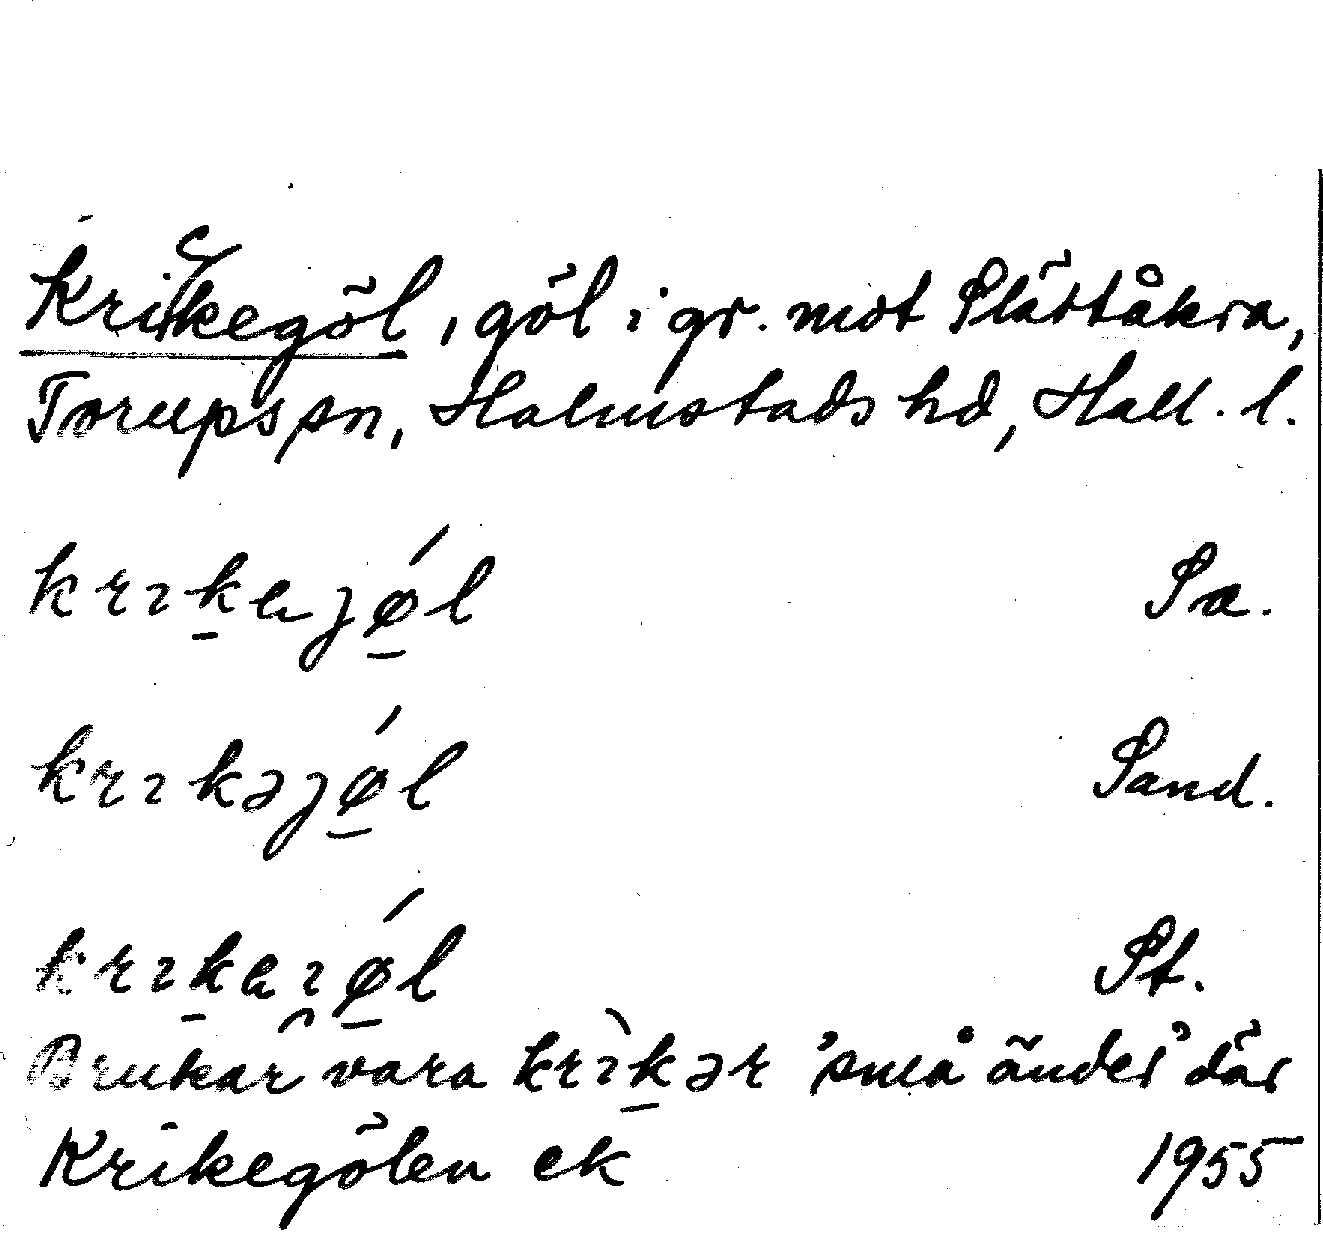 Krickegöl, göl i gr. mot Slättåkra,
Torups sn, Halmstads hd, Hall. l.
krıkajǿl Sa.
krıkəjǿl Sand.
krıkaı̯ǿl St.
Brukar vara krı̀kər 'små änder' där
Krikegölen ek 1955